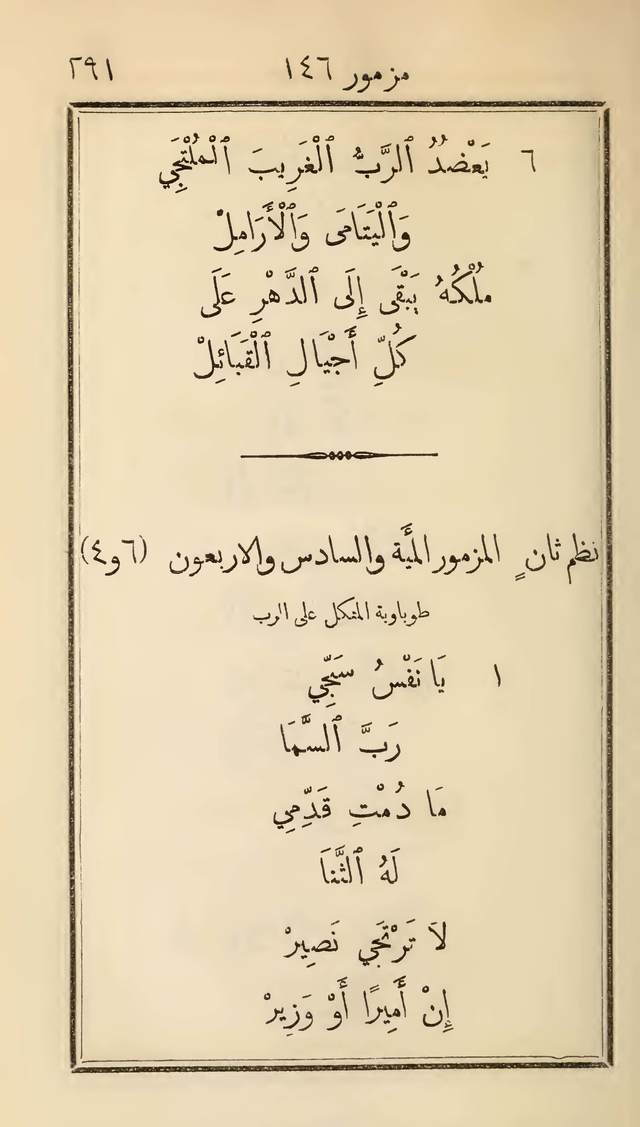 مزمور ١٤٦ ٢٩١
٦ يَعْضُدُ ٱلرَّبُّ ٱلْغَرِيبَ ٱلْمُلْتَجِي
وَٱلْيَتَامَى وَٱلْأَرَامِلْ
مُلْكُهُ يَبْقَى إِلَى ٱلدَّهْرِ عَلَى
كُلِّ أَجْيَالِ ٱلْقَبَائِلْ
نظم ثانٍ المزمور المئَة والسادس والاربعون (٦و٤)
طوباوية المتكل على الرب
١ يَا نَفْسُ سَبِّحِي
رَبَّ ٱلسَّمَا
مَا دُمْتِ قَدِّمِي
لَهُ ٱلثَّنَا
لاَ تَرْتَجَي نَصِيرْ
إِنْ أَمِيرًا أَوْ وَزِيرْ